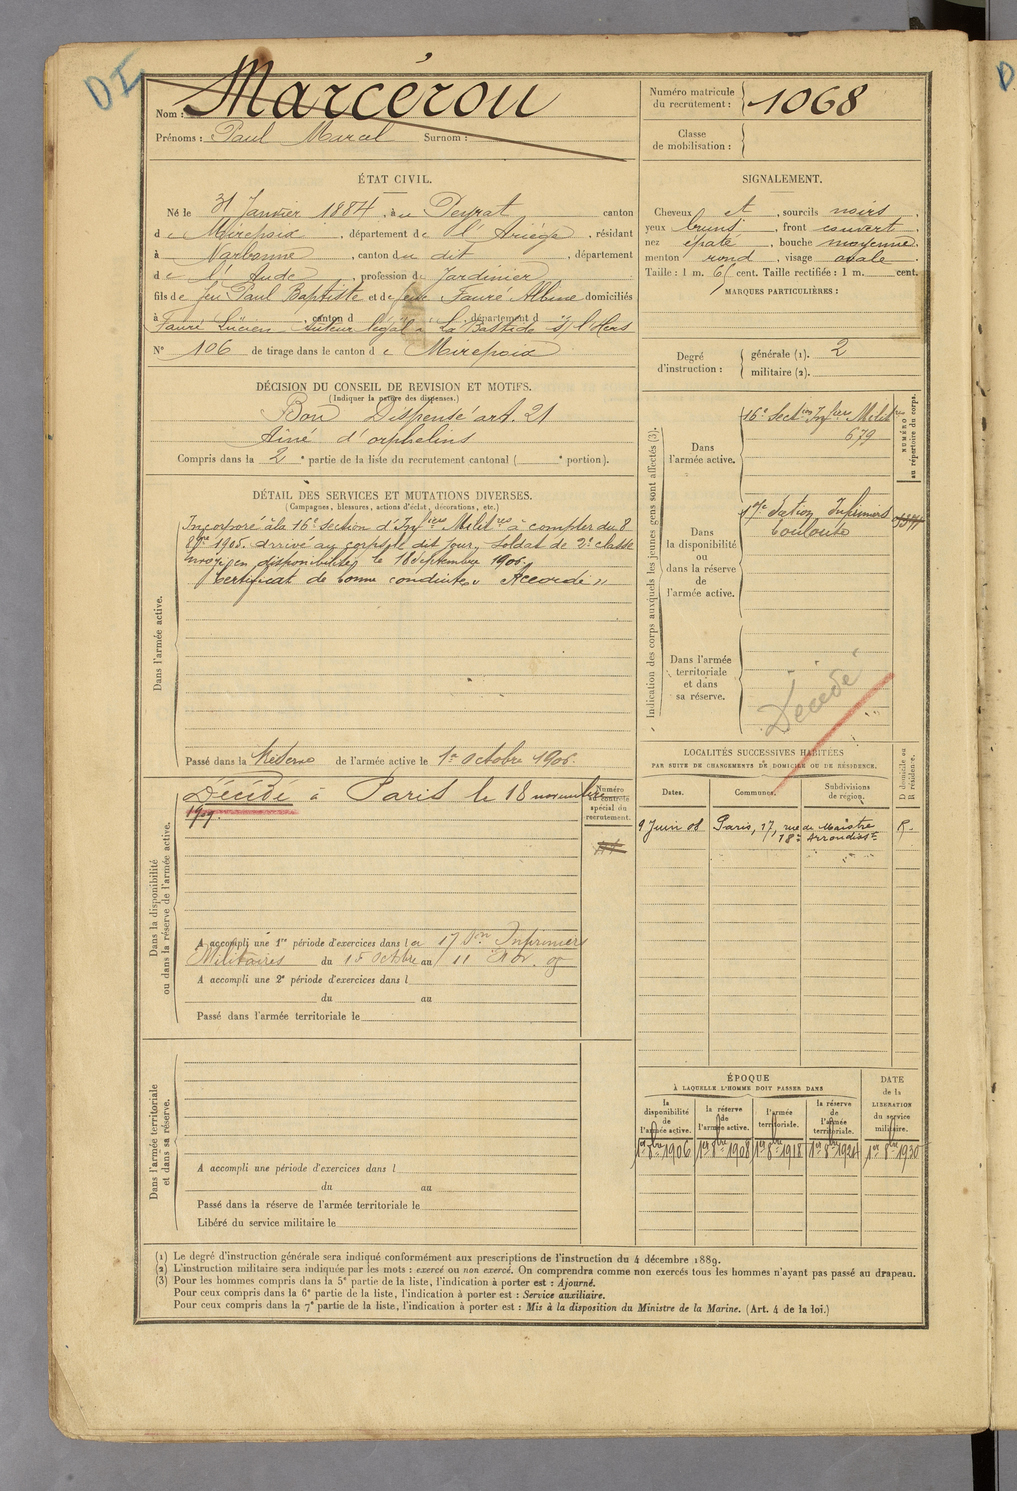 DI
Nom : Marcérou
Prénoms : Paul Marcel Surnom :
Numéro matricule du recrutement : 1068
Classe de mobilisation :
ÉTAT CIVIL.
Né le 31 Janvier 1884, à u Peyrat canton
d e Mirepoix, département de l'Ariège, résidant
à Narbonne, canton du dit, département
d e l'Aude, profession de Jardinier
fils de feu Paul Baptiste et de feue Fauré Albine domiciliés
à , canton d , département d
Fauré Lucien tuteur légal à La Bastide s/ l'Hers
N° 106 de tirage dans le canton d e Mirepoix
SIGNALEMENT.
Cheveux et , sourcils noirs ,
yeux bruns , front couvert ,
nez épaté , bouche moyenne ,
menton rond , visage ovale .
Taille : 1 m. 65 cent. Taille rectifiée : 1 m. cent.
MARQUES PARTICULIÈRES :
Degré d'instruction :
générale (1). 2
militaire (2).
DÉCISION DU CONSEIL DE REVISION ET MOTIFS.
(Indiquer la nature des dispenses.)
Bon Dispensé art. 21
Aîné d'orphelins
Compris dans la 2e partie de la liste du recrutement cantonal ( e portion).
DÉTAIL DES SERVICES ET MUTATIONS DIVERSES.
(Campagnes, blessures, actions d'éclat, décorations, etc.)
Dans l'armée active.
Incorporé à la 16e section d'Infiers Militres à compter du 8
8bre 1905. arrivé au corps le dit jour, soldat de 2e classe
envoyé en disponibilité, le 18 septembre 1906.
Certificat de bonne conduite « Accordé »
Passé dans la Réserve de l'armée active le 1er octobre 1906.
Indication des corps auxquels les jeunes gens sont affectés (3).
NUMÉRO au répertoire du corps.
Dans l'armée active.
16e Secton Infiers Militres
679
Dans la disponibilité ou dans la réserve de l'armée active.
17e Section Infirmiers
Toulouse
Dans l'armée territoriale et dans sa réserve.
Décédé
LOCALITÉS SUCCESSIVES HABITÉES
PAR SUITE DE CHANGEMENTS DE DOMICILE OU DE RÉSIDENCE.
Dates. Communes. Subdivisions de région. D domicile ou R résidence.
9 Juin 08 Paris, 17, rue de Maistre R.
18e Arrondisst
Dans la disponibilité ou dans la réserve de l'armée active.
Décédé à Paris le 18 novembre
1909.
Numéro au contrôle spécial du recrutement.
A accompli une 1re période d'exercices dans l a 17 Son Infirmiers
Militaires du 15 Octbre au 11 Nov. 09
A accompli une 2e période d'exercices dans l
du au
Passé dans l'armée territoriale le
Dans l'armée territoriale et dans sa réserve.
A accompli une période d'exercices dans l
du au
Passé dans la réserve de l'armée territoriale le
Libéré du service militaire le
ÉPOQUE
À LAQUELLE L'HOMME DOIT PASSER DANS
DATE de la LIBÉRATION du service militaire.
la disponibilité de l'armée active. la réserve de l'armée active. l'armée territoriale. la réserve de l'armée territoriale.
1er 8bre 1906 1er 8bre 1908 1er 8bre 1918 1er 8bre 1924 1er 8bre 1930
(1) Le degré d'instruction générale sera indiqué conformément aux prescriptions de l'instruction du 4 décembre 1889.
(2) L'instruction militaire sera indiquée par les mots : exercé ou non exercé. On comprendra comme non exercés tous les hommes n'ayant pas passé au drapeau.
(3) Pour les hommes compris dans la 5e partie de la liste, l'indication à porter est : Ajourné.
Pour ceux compris dans la 6e partie de la liste, l'indication à porter est : Service auxiliaire.
Pour ceux compris dans la 7e partie de la liste, l'indication à porter est : Mis à la disposition du Ministre de la Marine. (Art. 4 de la loi.)